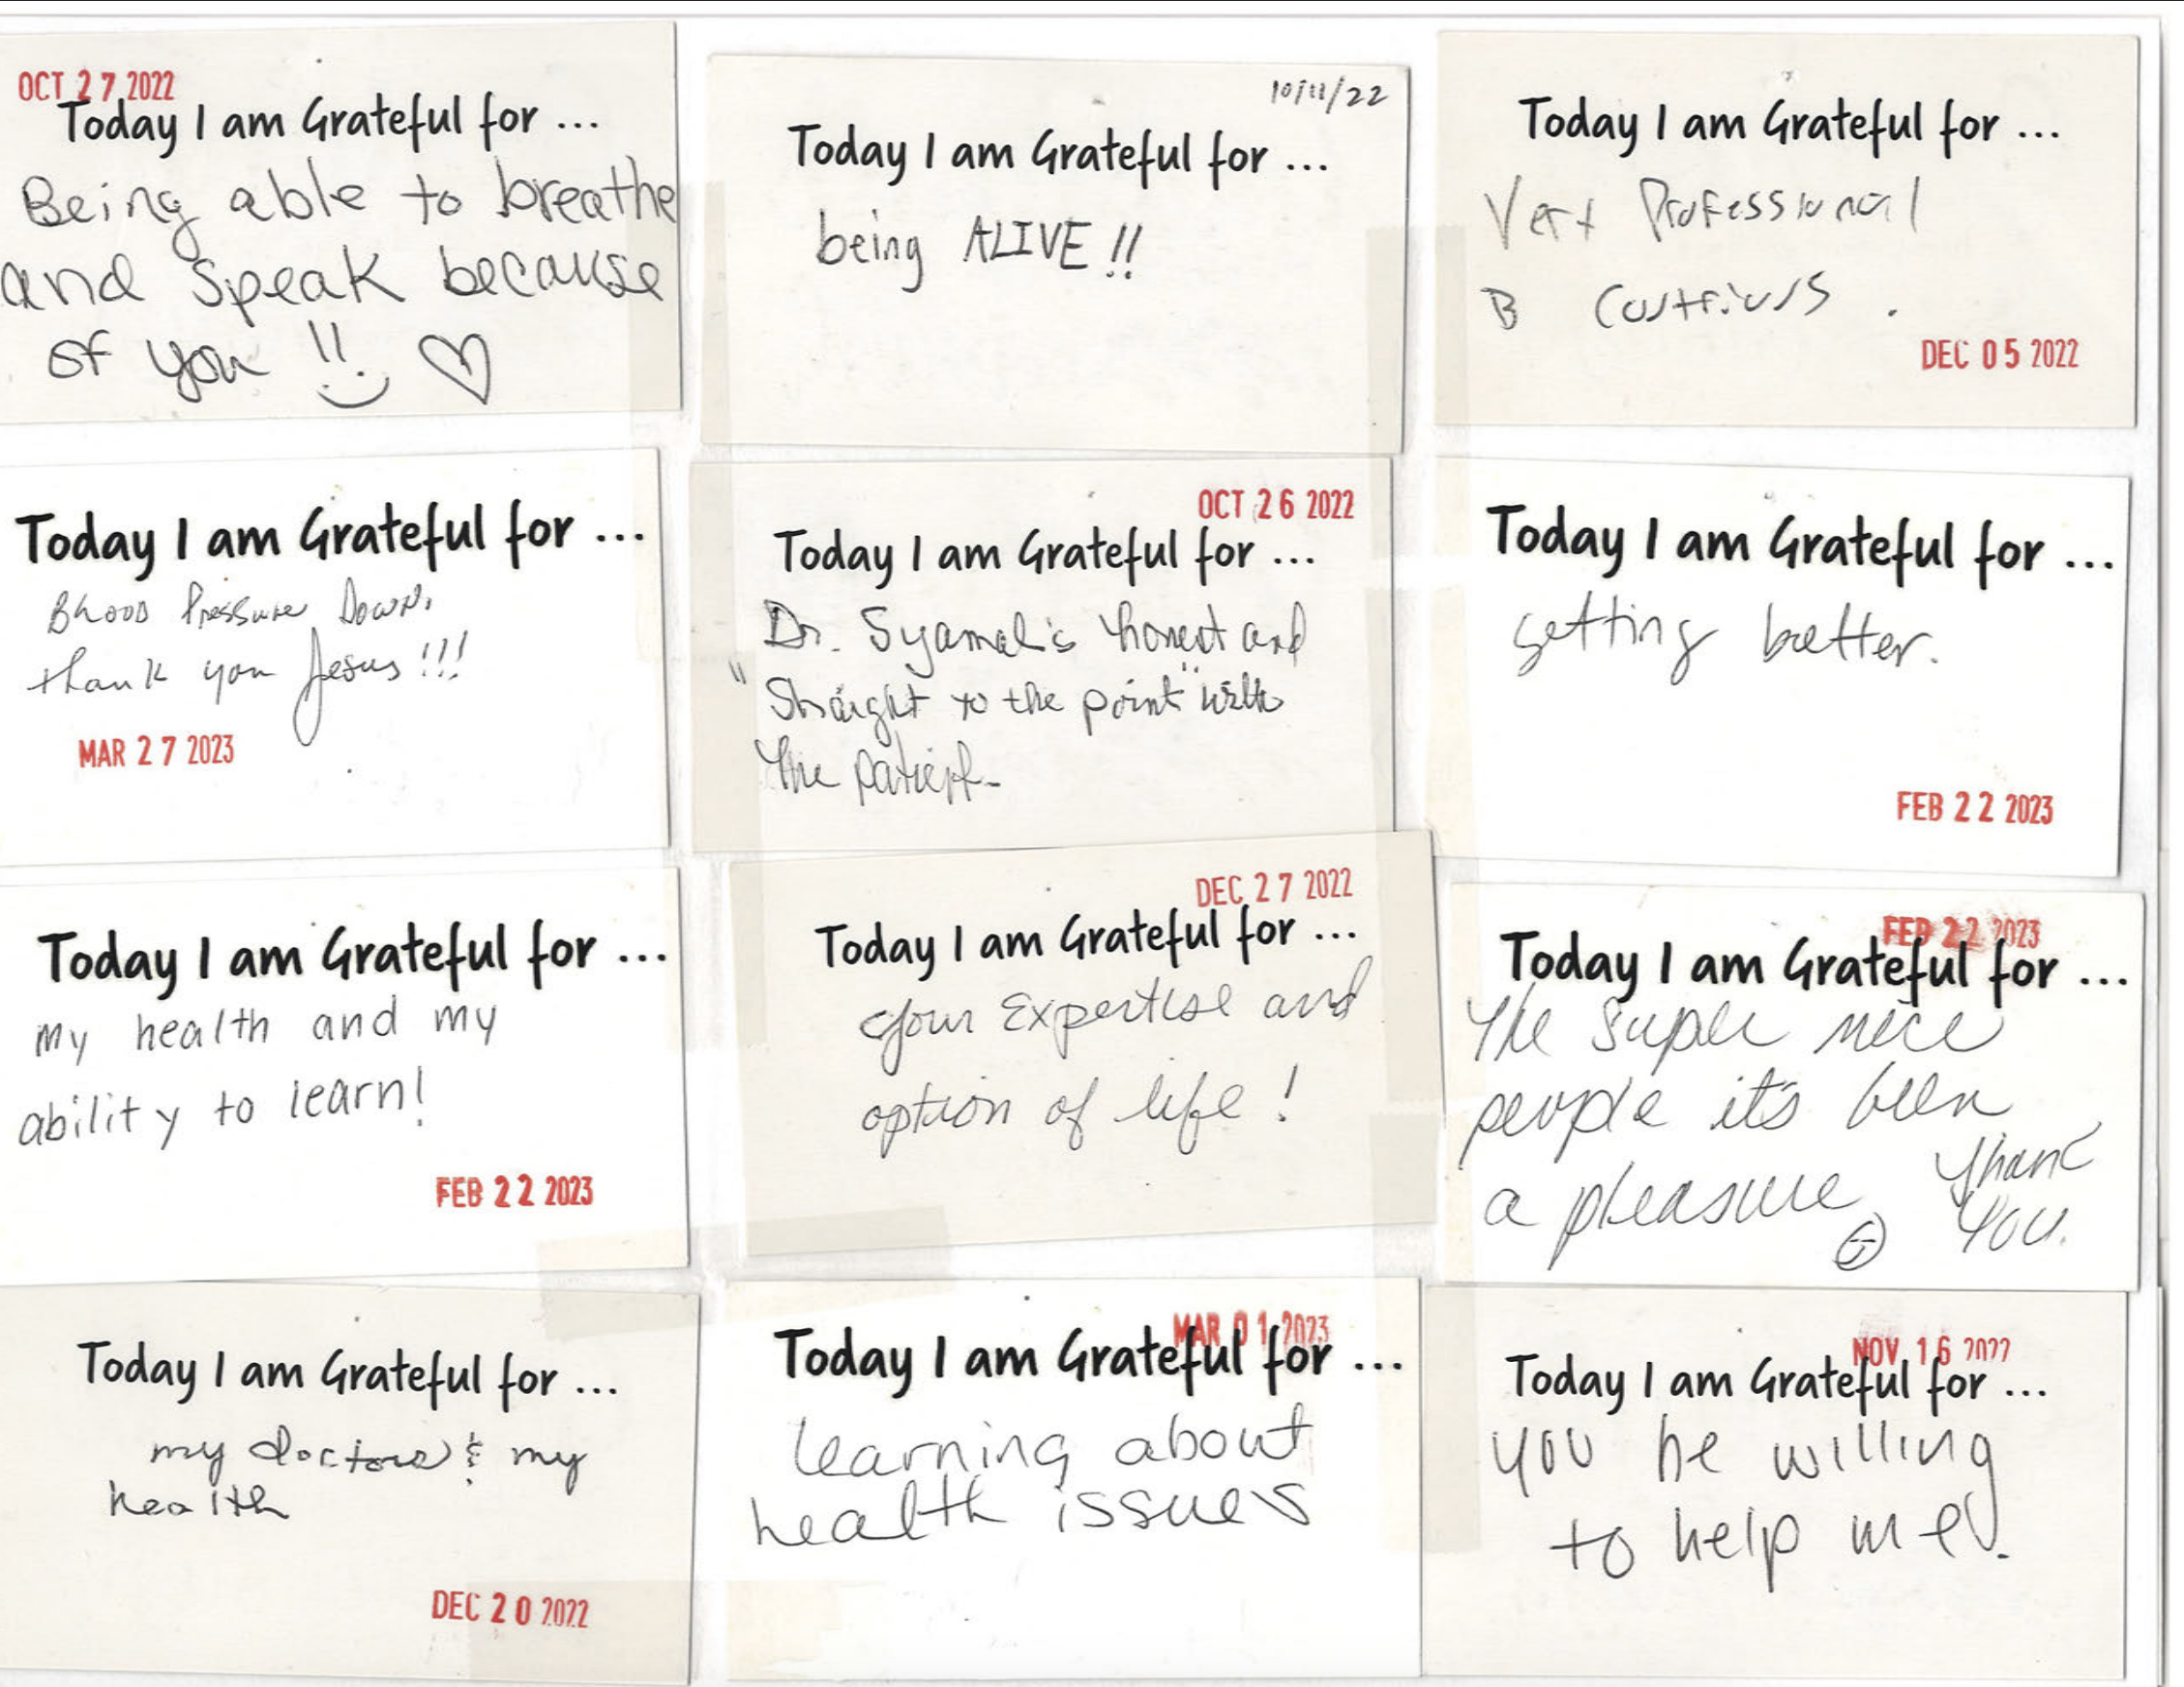 OCT 27 2022
Today I am Grateful for ...
Being able to breathe
and speak because
of you !!
10/11/22
Today I am Grateful for ...
being ALIVE !!
Today I am Grateful for ...
Professional
B
DEC 05 2022
Today I am Grateful for ...
Blood Pressure Down,
thank you Jesus!!!
MAR 27 2023
OCT 26 2022
Today I am Grateful for ...
Dr. Syamal's honest and
"Straight to the point" with
the patient
Today I am Grateful for ...
getting better.
FEB 22 2023
Today I am Grateful for ...
my health and my
ability to learn!
FEB 22 2023
DEC 27 2022
Today I am Grateful for ...
your Expertise and
option of life!
FEB 22 2023
Today I am Grateful for ...
The super nice
people it's been
a pleasure Thank
You.
Today I am Grateful for ...
my doctors & my
health
DEC 20 2022
MAR 01 2023
Today I am Grateful for ...
learning about
health issues
NOV 16 2022
Today I am Grateful for ...
you be willing
to help me.